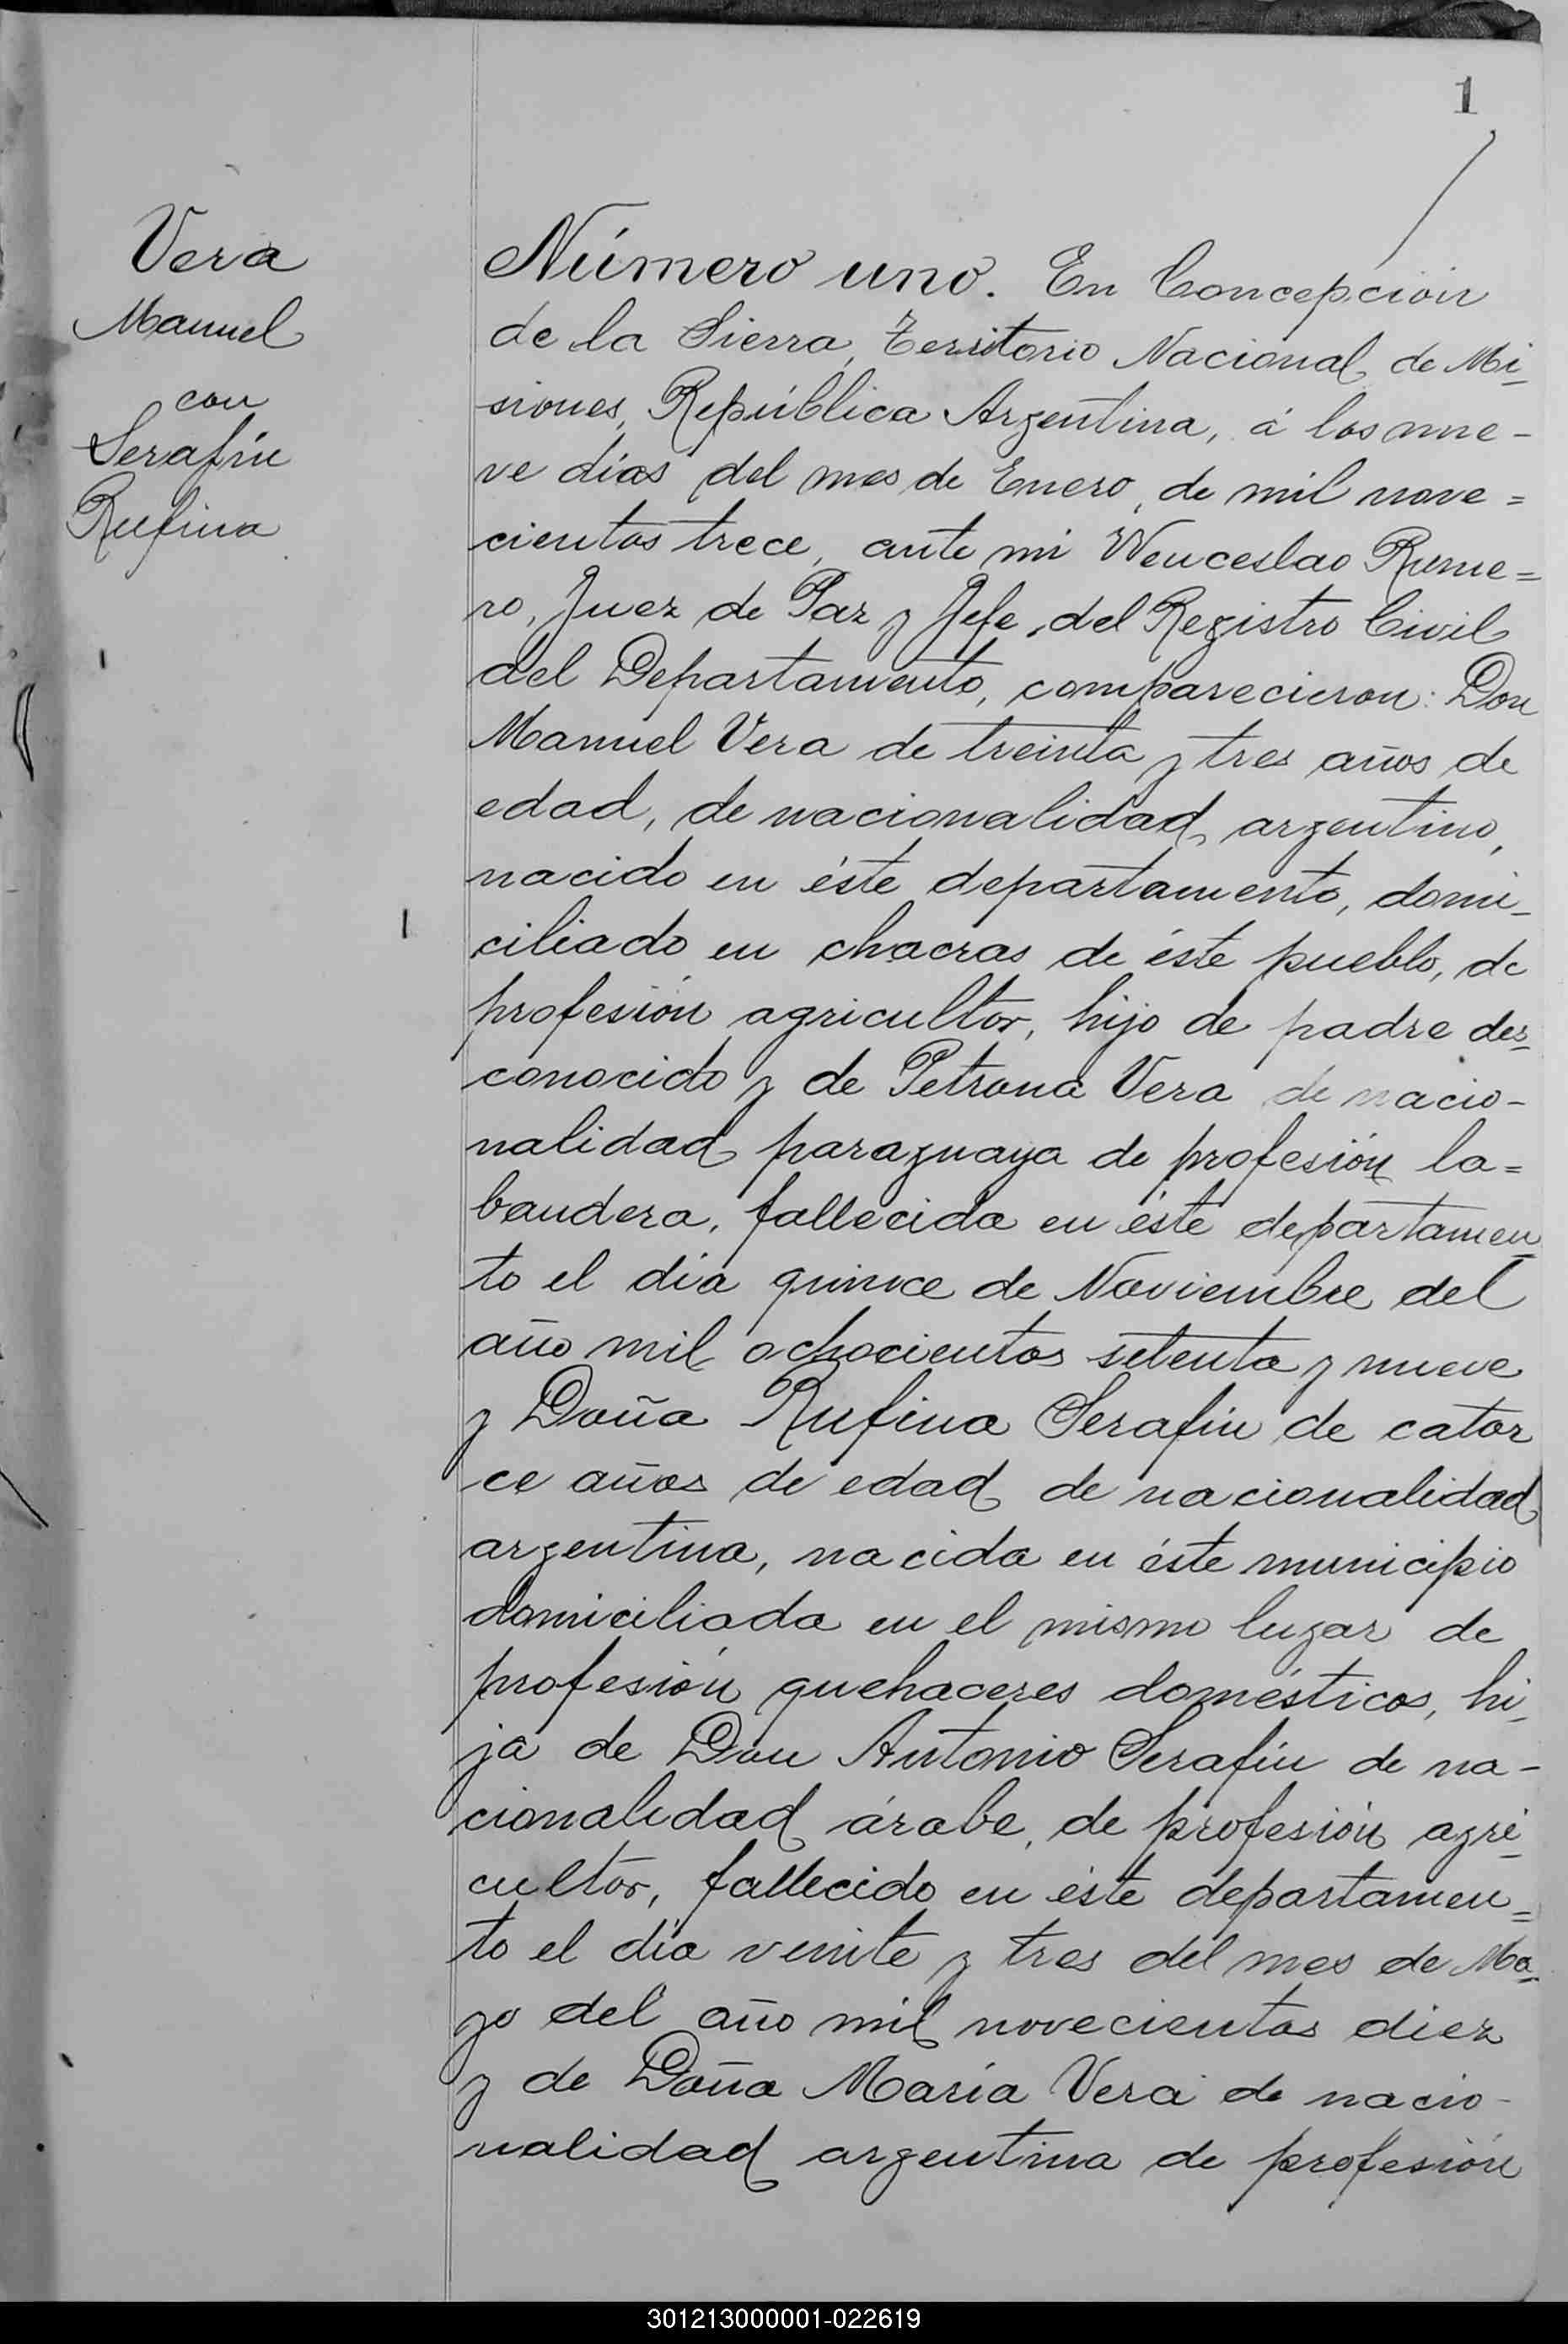 1
Vera
Manuel
con
Serafín
Rufina
Número uno. En Concepción
de la Sierra, Territorio Nacional de Mi-
siones, República Argentina, á los nue-
ve días del mes de Enero, de mil nove=
cientos trece, ante mi Wenceslao Rome=
ro, Juez de Paz y Jefe, del Registro Civil
del Departamento, comparecieron: Don
Manuel Vera de treinta y tres años de
edad, de nacionalidad argentino,
nacido en éste departamento, domi-
ciliado en chacras de éste pueblo, de
profesión agricultor, hijo de padre des-
conocido y de Petrona Vera de nacio-
nalidad paraguaya de profesión la=
bandera, fallecida en éste departamen-
to el día quince de Noviembre del
año mil ochocientos setenta y nueve
y Doña Rufina Serafín de cator
ce años de edad de nacionalidad
argentina, nacida en éste municipio
domiciliada en el mismo lugar de
profesión quehaceres domésticos, hi-
ja de Don Antonio Serafín de na-
cionalidad árabe, de profesión agri-
cultor, fallecido en éste departamen=
to el día veinte y tres del mes de Ma-
yo del año mil novecientos diez
y de Doña María Vera de nacio-
nalidad argentina de profesión
301213000001-022619